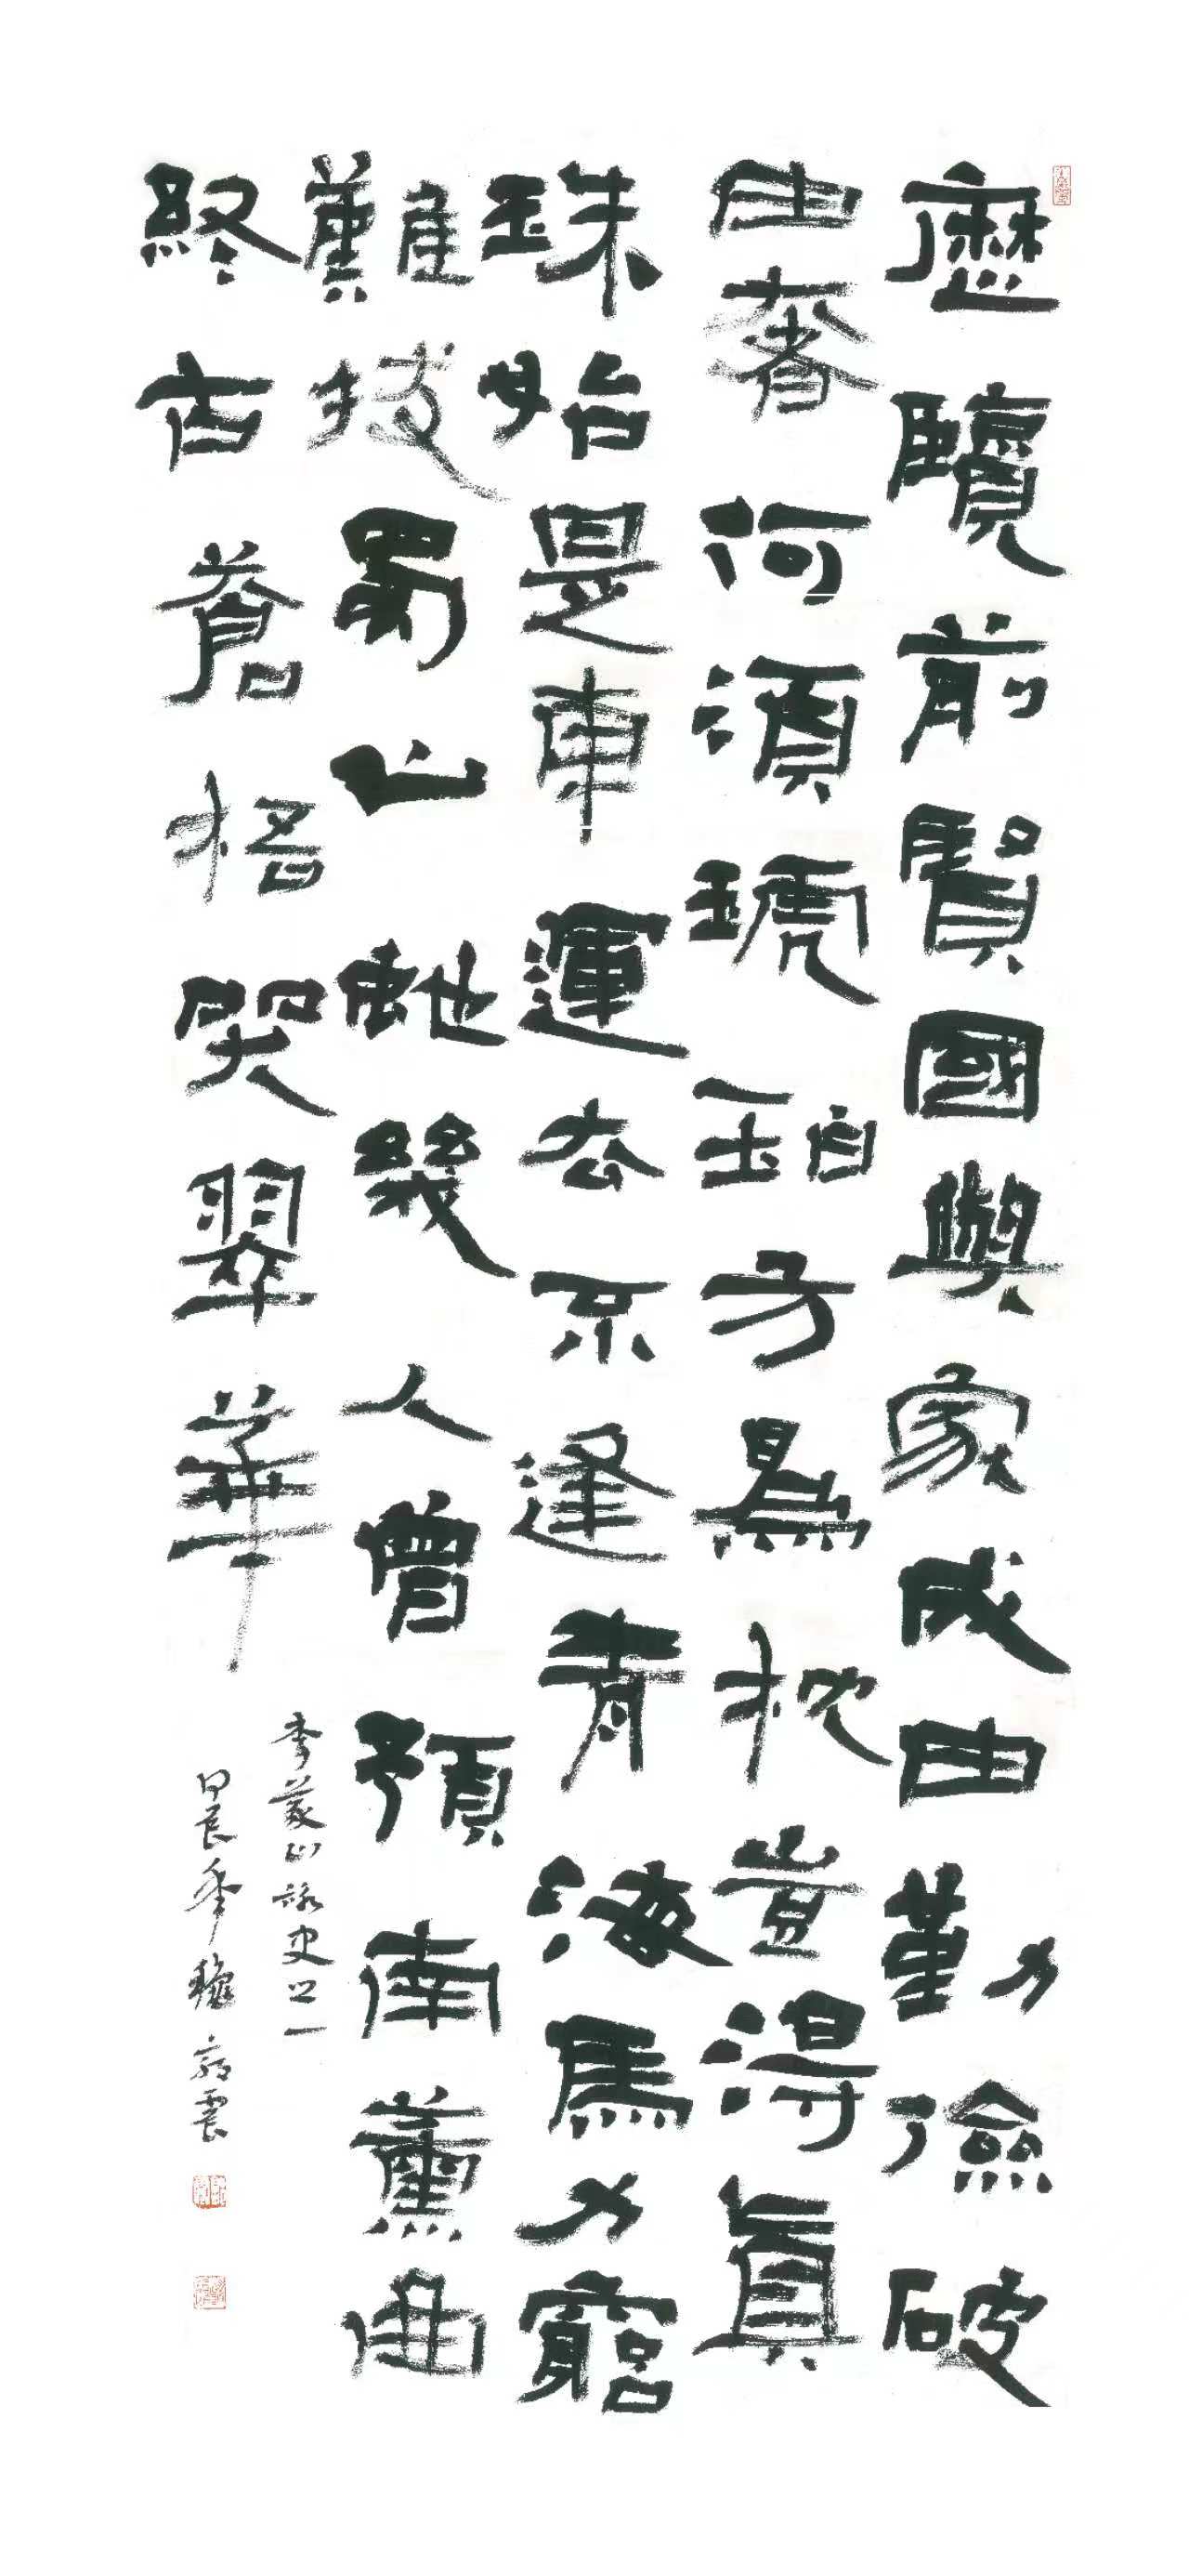 歷覽前賢國與家成由勤儉破
由奢何須琥珀方為枕豈得真
珠始是車運去不逢青海馬力窮
難拔蜀山蛇幾人曾預南薰曲
終古蒼梧哭翠華
李義山詠史之一
甲辰年秋 雲